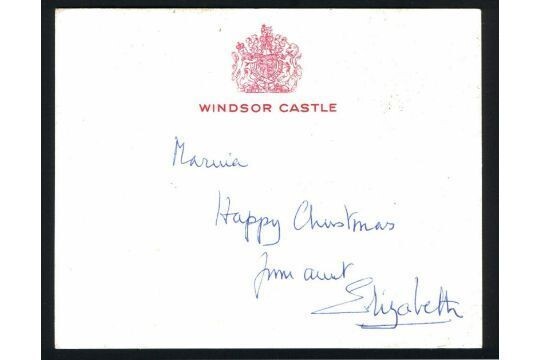 WINDSOR CASTLE
Marina
Happy Christmas
from aunt
Elizabeth